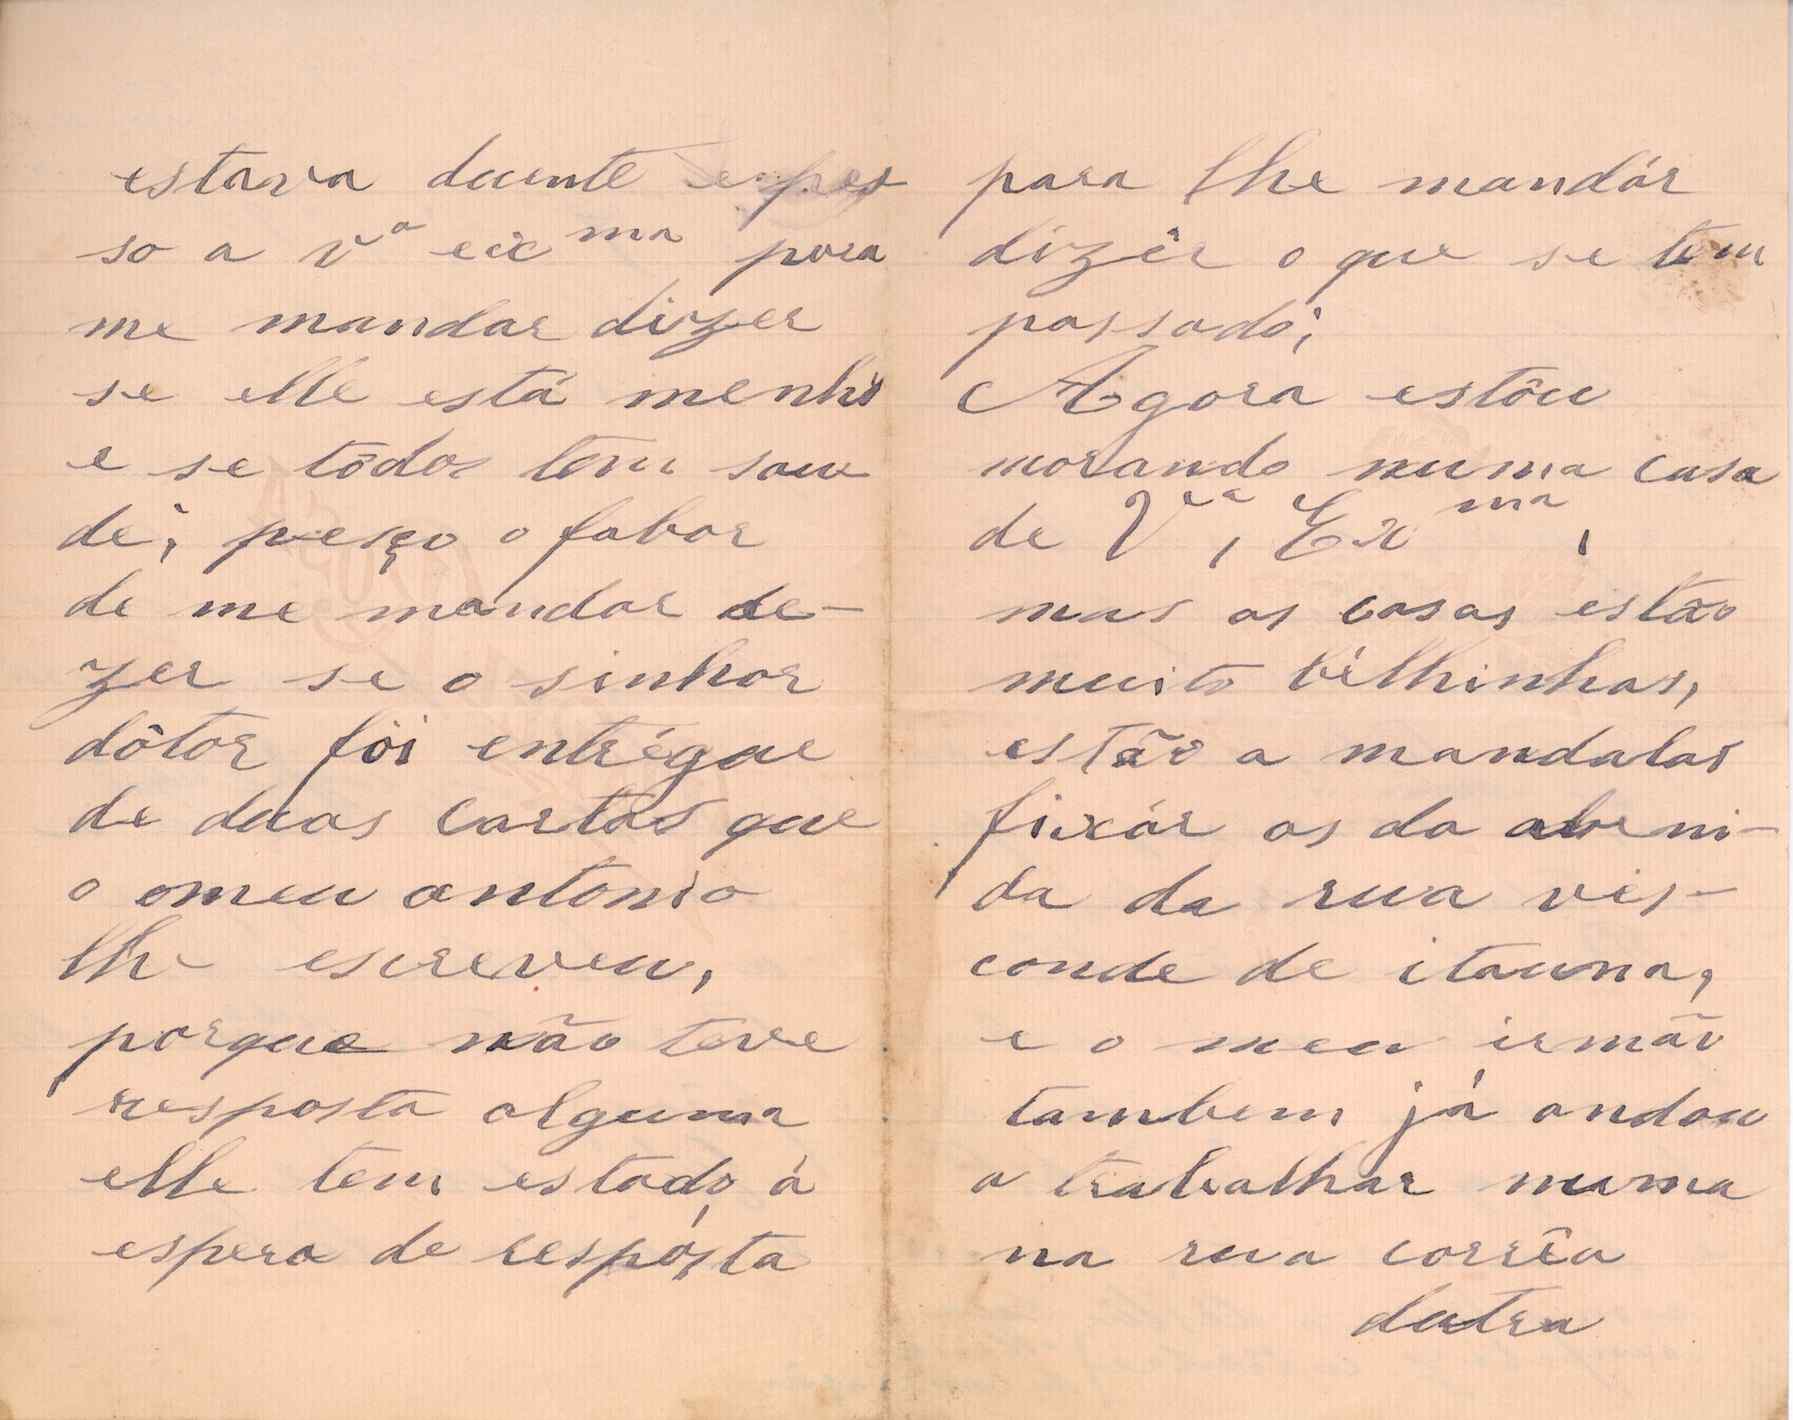 estava duente e pes
so a vª eic ma para
me mandar dizer
se elle está menhó
e se tôdos tem sau
de; pesço o fabor
de me mandar de-
zer se o sinhor
dôtor föi entrégue
de duas cartas que
o omeu antonio
lhe escreveu,
porque não teve
resposta alguma
elle tem estado á
espera de respósta
para lhe mandár
dizêr o que se tem
passado;
Agora estôu
morando numa casa
de Vᵃᵃ, Ex ma,
mas as casas estão
muito bélhinhas,
estão a mandalas
fixár as da abeni-
da da rua vis-
conde de itauna,
e o meu irmão
tambem já andou
a trabalhar numa
na rua corrêa
dutra